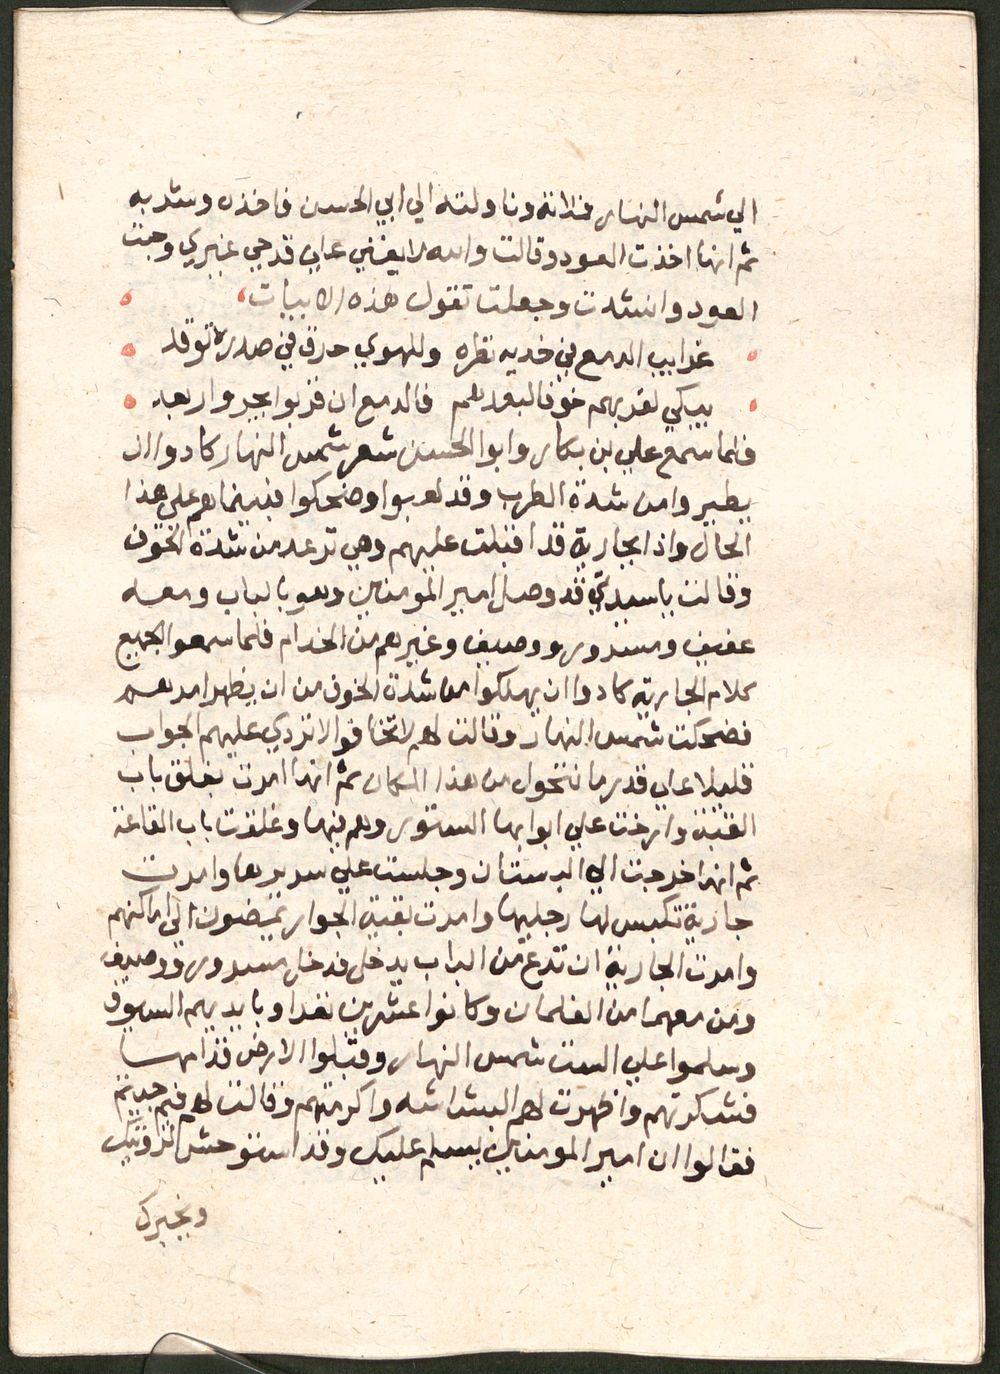 الي شمس النهار فملاته وناولته الي ابي الحسن فاخذه وشربه
ثم انها اخذت العود وقالت والله لا يغني علي قدحي غيري وجست
العود وانشدت وجعلت تقول هذه الابيات
غرايب الدمع في خديه تطره وللهوي حرق في صدره توقد
يبكي لقربهم خوفا لبعدهم فالدمع ان قربوا يجر وان بعد
فلما سمع علي بن بكار وابو الحسن شعر شمس النهار كادوا ان
يطيروا من شدة الطرب وقد لعبوا وضحكوا فبينما هم علي هذا
الحال واذا بجارية قد اقبلت عليهم وهي ترعد من شدة الخوف
وقالت يا سيدتي قد وصل امير المومنين وهو بالباب ومعه
عفيف ومسرور ووصيف وغيرهم من الخدام فلما سمعوا الجميع
كلام الجارية كادوا ان يهلكوا من شدة الخوف من ان يظهر امرهم
فضحكت شمس النهار وقالت لهم لا تخافوا لا تردي عليهم الجواب
قليلا علي قدر ما نتحول من هذا المكان ثم انها امرت بغلق باب
القبة وارخت علي ابوابها الستور وهم فيها وغلقت باب القاعة
ثم انها خرجت الي البستان وجلست علي سريرها وامرت
جارية تكبس لها رجليها وامرت بقية الجوار يمضون الي اماكنهم
وامرت الجارية ان تدع من الباب يدخل فدخل مسرور ووصيف
ومن معهما من الغلمان وكانوا عشرين نفرا وبايديهم السيوف
وسلموا علي الست شمس النهار وقبلوا الارض قدامها
فشكرتهم واظهرت لهم البشاشه واكرمتهم وقالت لهم فيم جيتم
فقالوا ان امير المومنين يسلم عليك وقد استوحش لرويتك
ويخبرك